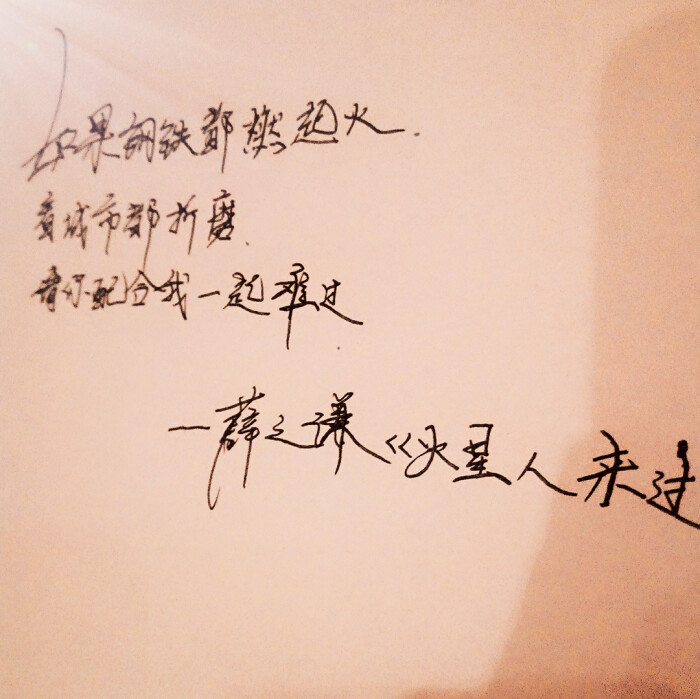 如果钢铁都燃起火.
看城市都折磨.
请你配合我一起难过.
—薛之谦《火星人来过